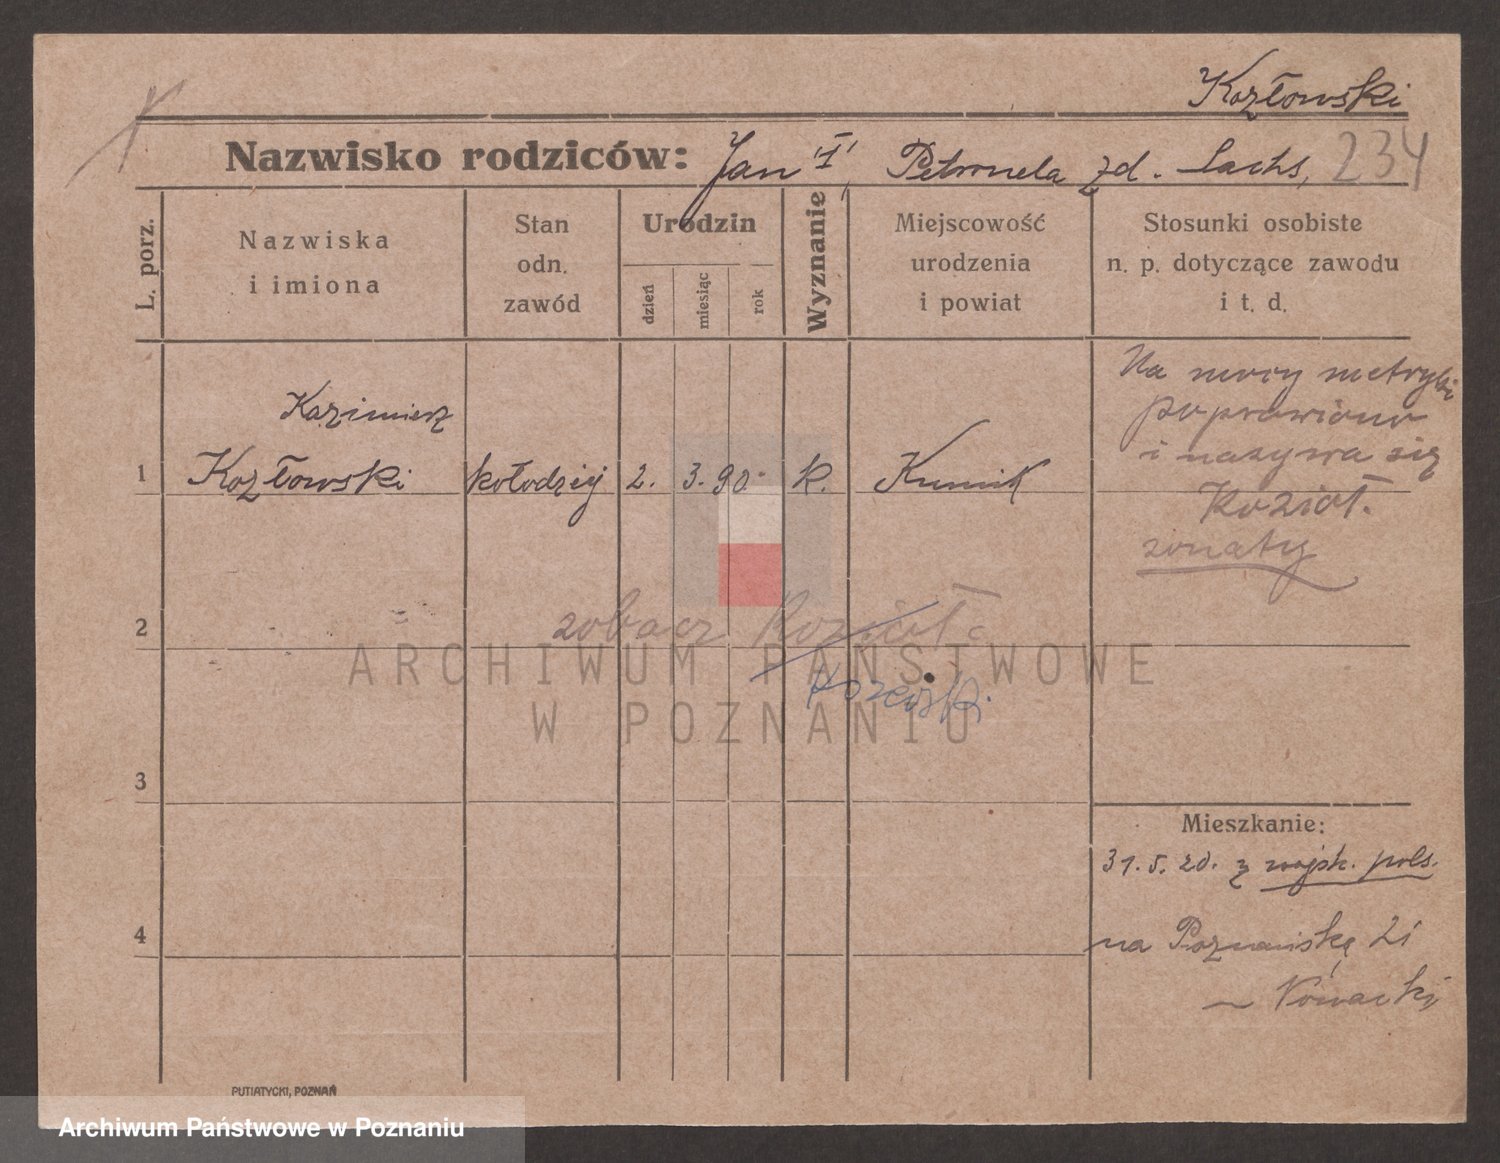 Kozłowski
Nazwisko rodziców: Jan "I", Petronela zd. Lachs, 234
L. porz.
Nazwiska
i imiona
Stan
odn.
zawód
Urodzin
dzień
miesiąc
rok
Wyznanie
Miejscowość
urodzenia
i powiat
Stosunki osobiste
n. p. dotyczące zawodu
i t. d.
Na mocy metryki
poprawiono
i nazywa się
Kozioł.
żonaty
Kazimierz
1 Kozłowski kołodziej 2. 3. 90. k. Kurnik
2 zobacz Kozioł
ARCHIWUM PAŃSTWOWE
W POZNANIU
3
Mieszkanie:
31. 5. 20. z wojsk. pols.
4
na Poznańską 21
Nowacki
PUTIATYCKI, POZNAŃ
Archiwum Państwowe w Poznaniu